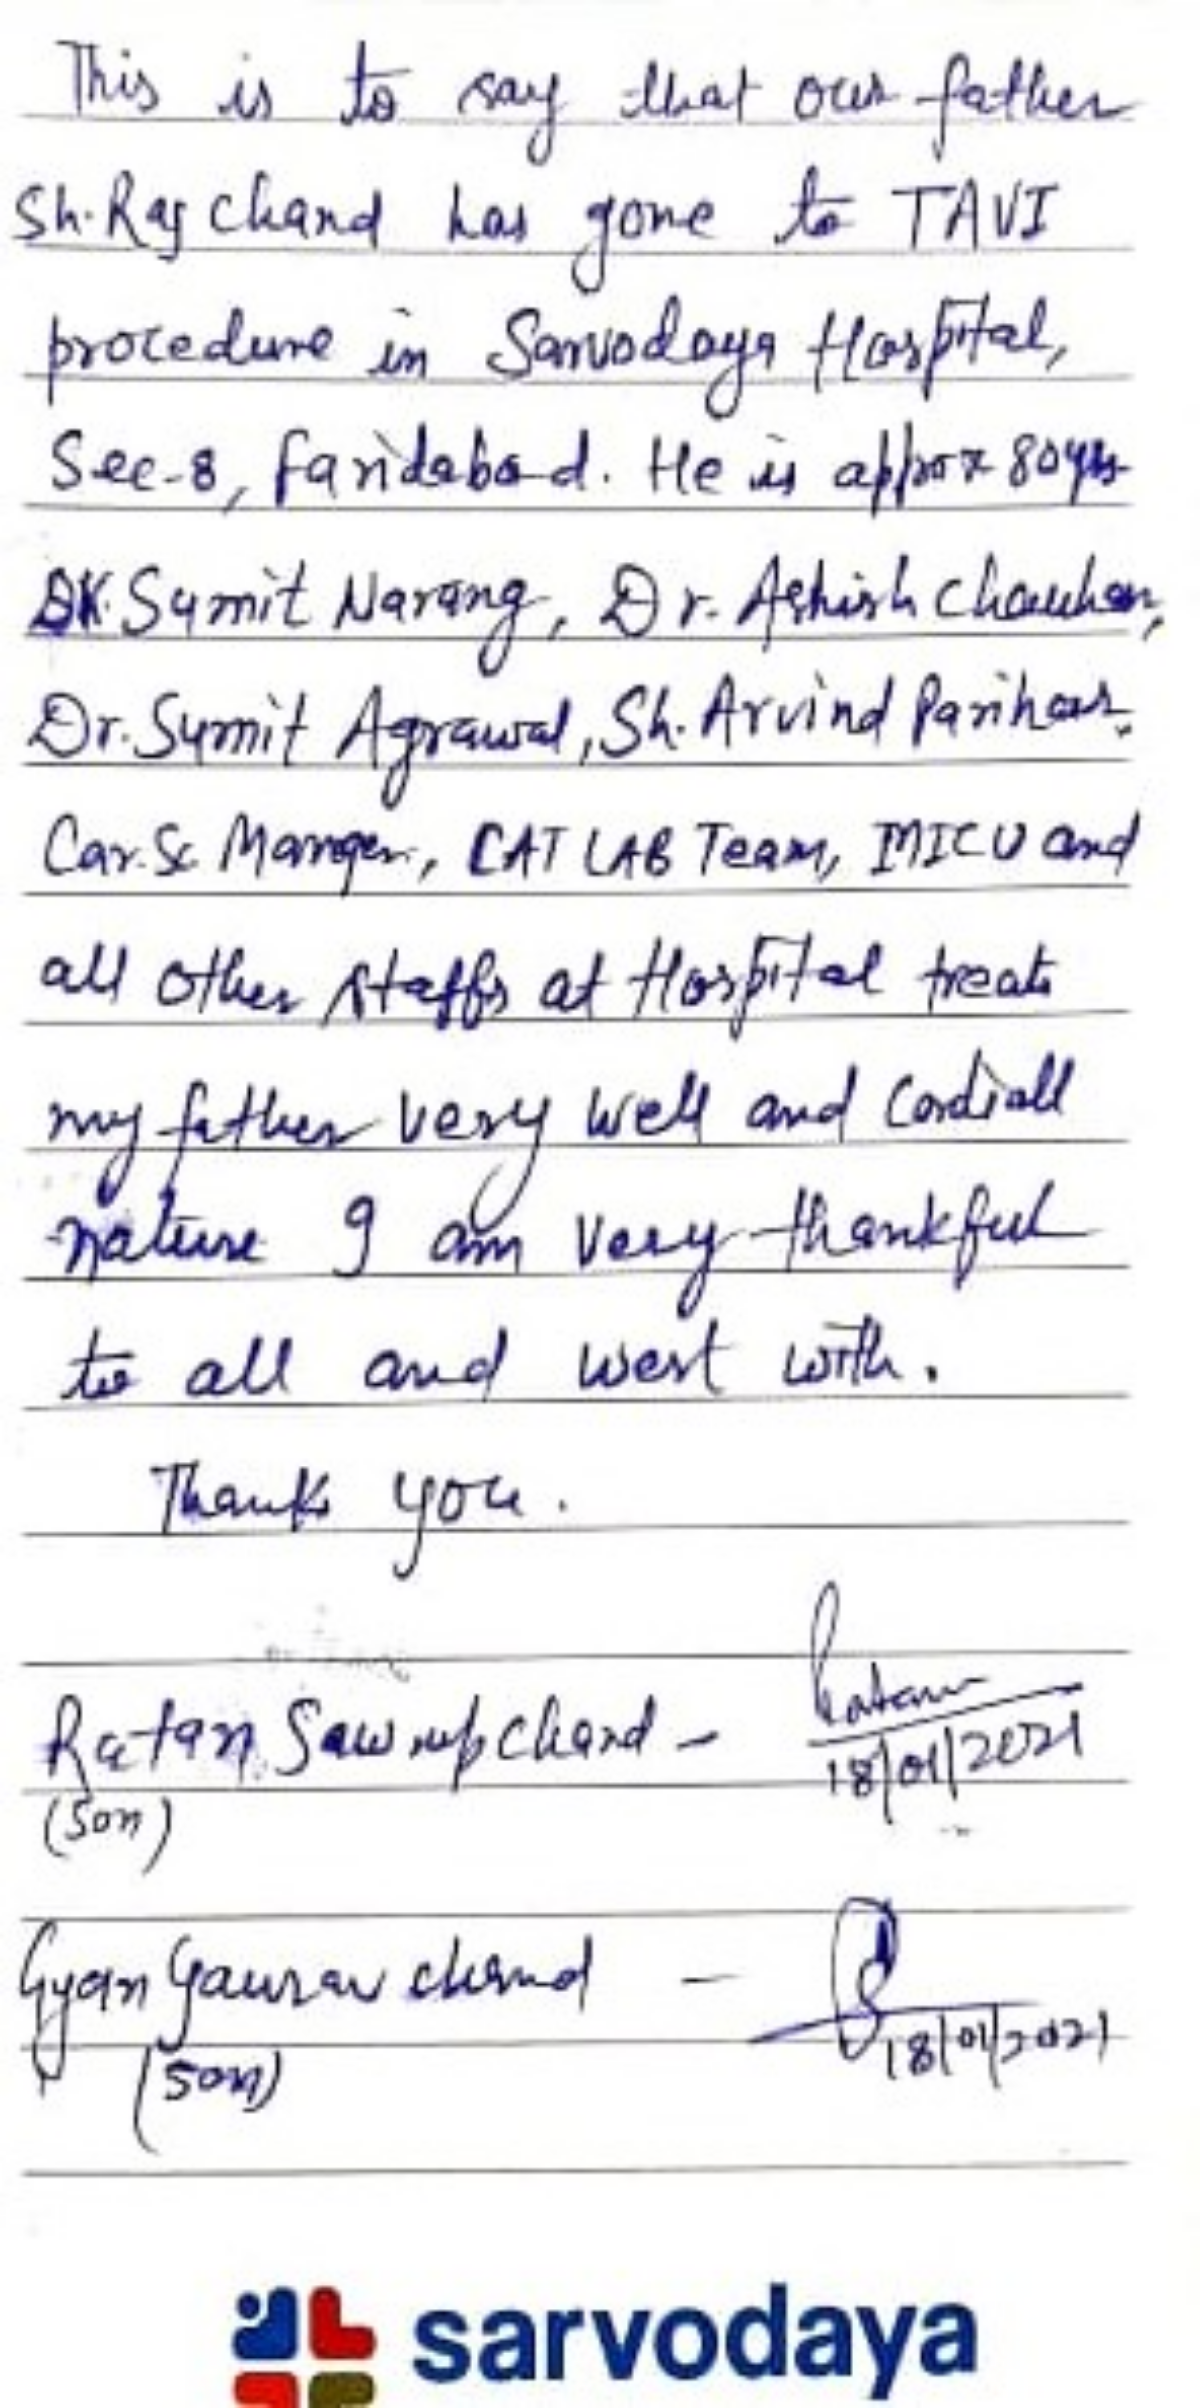 This is to say that our father
Sh. Raj Chand has gone to TAVI
procedure in Sarvodaya Hospital,
Sec-8, Faridabad. He is approx 80yrs
DR. Sumit Narang, Dr. Ashish Chauhan,
Dr. Sumit Agrawal, Sh. Arvind Parihar.
Car.Sc Manger, CAT LAB Team, MICU and
all other staffs at Hospital treats
my father very well and Cordiall
nature I am very thankful
to all and west with.
Thanks you.
Ratan Sawrup Chand - Ratan
18/01/2021
(Son)
Gyan Gaurav Chand -
18/01/2021
(Son)
sarvodaya